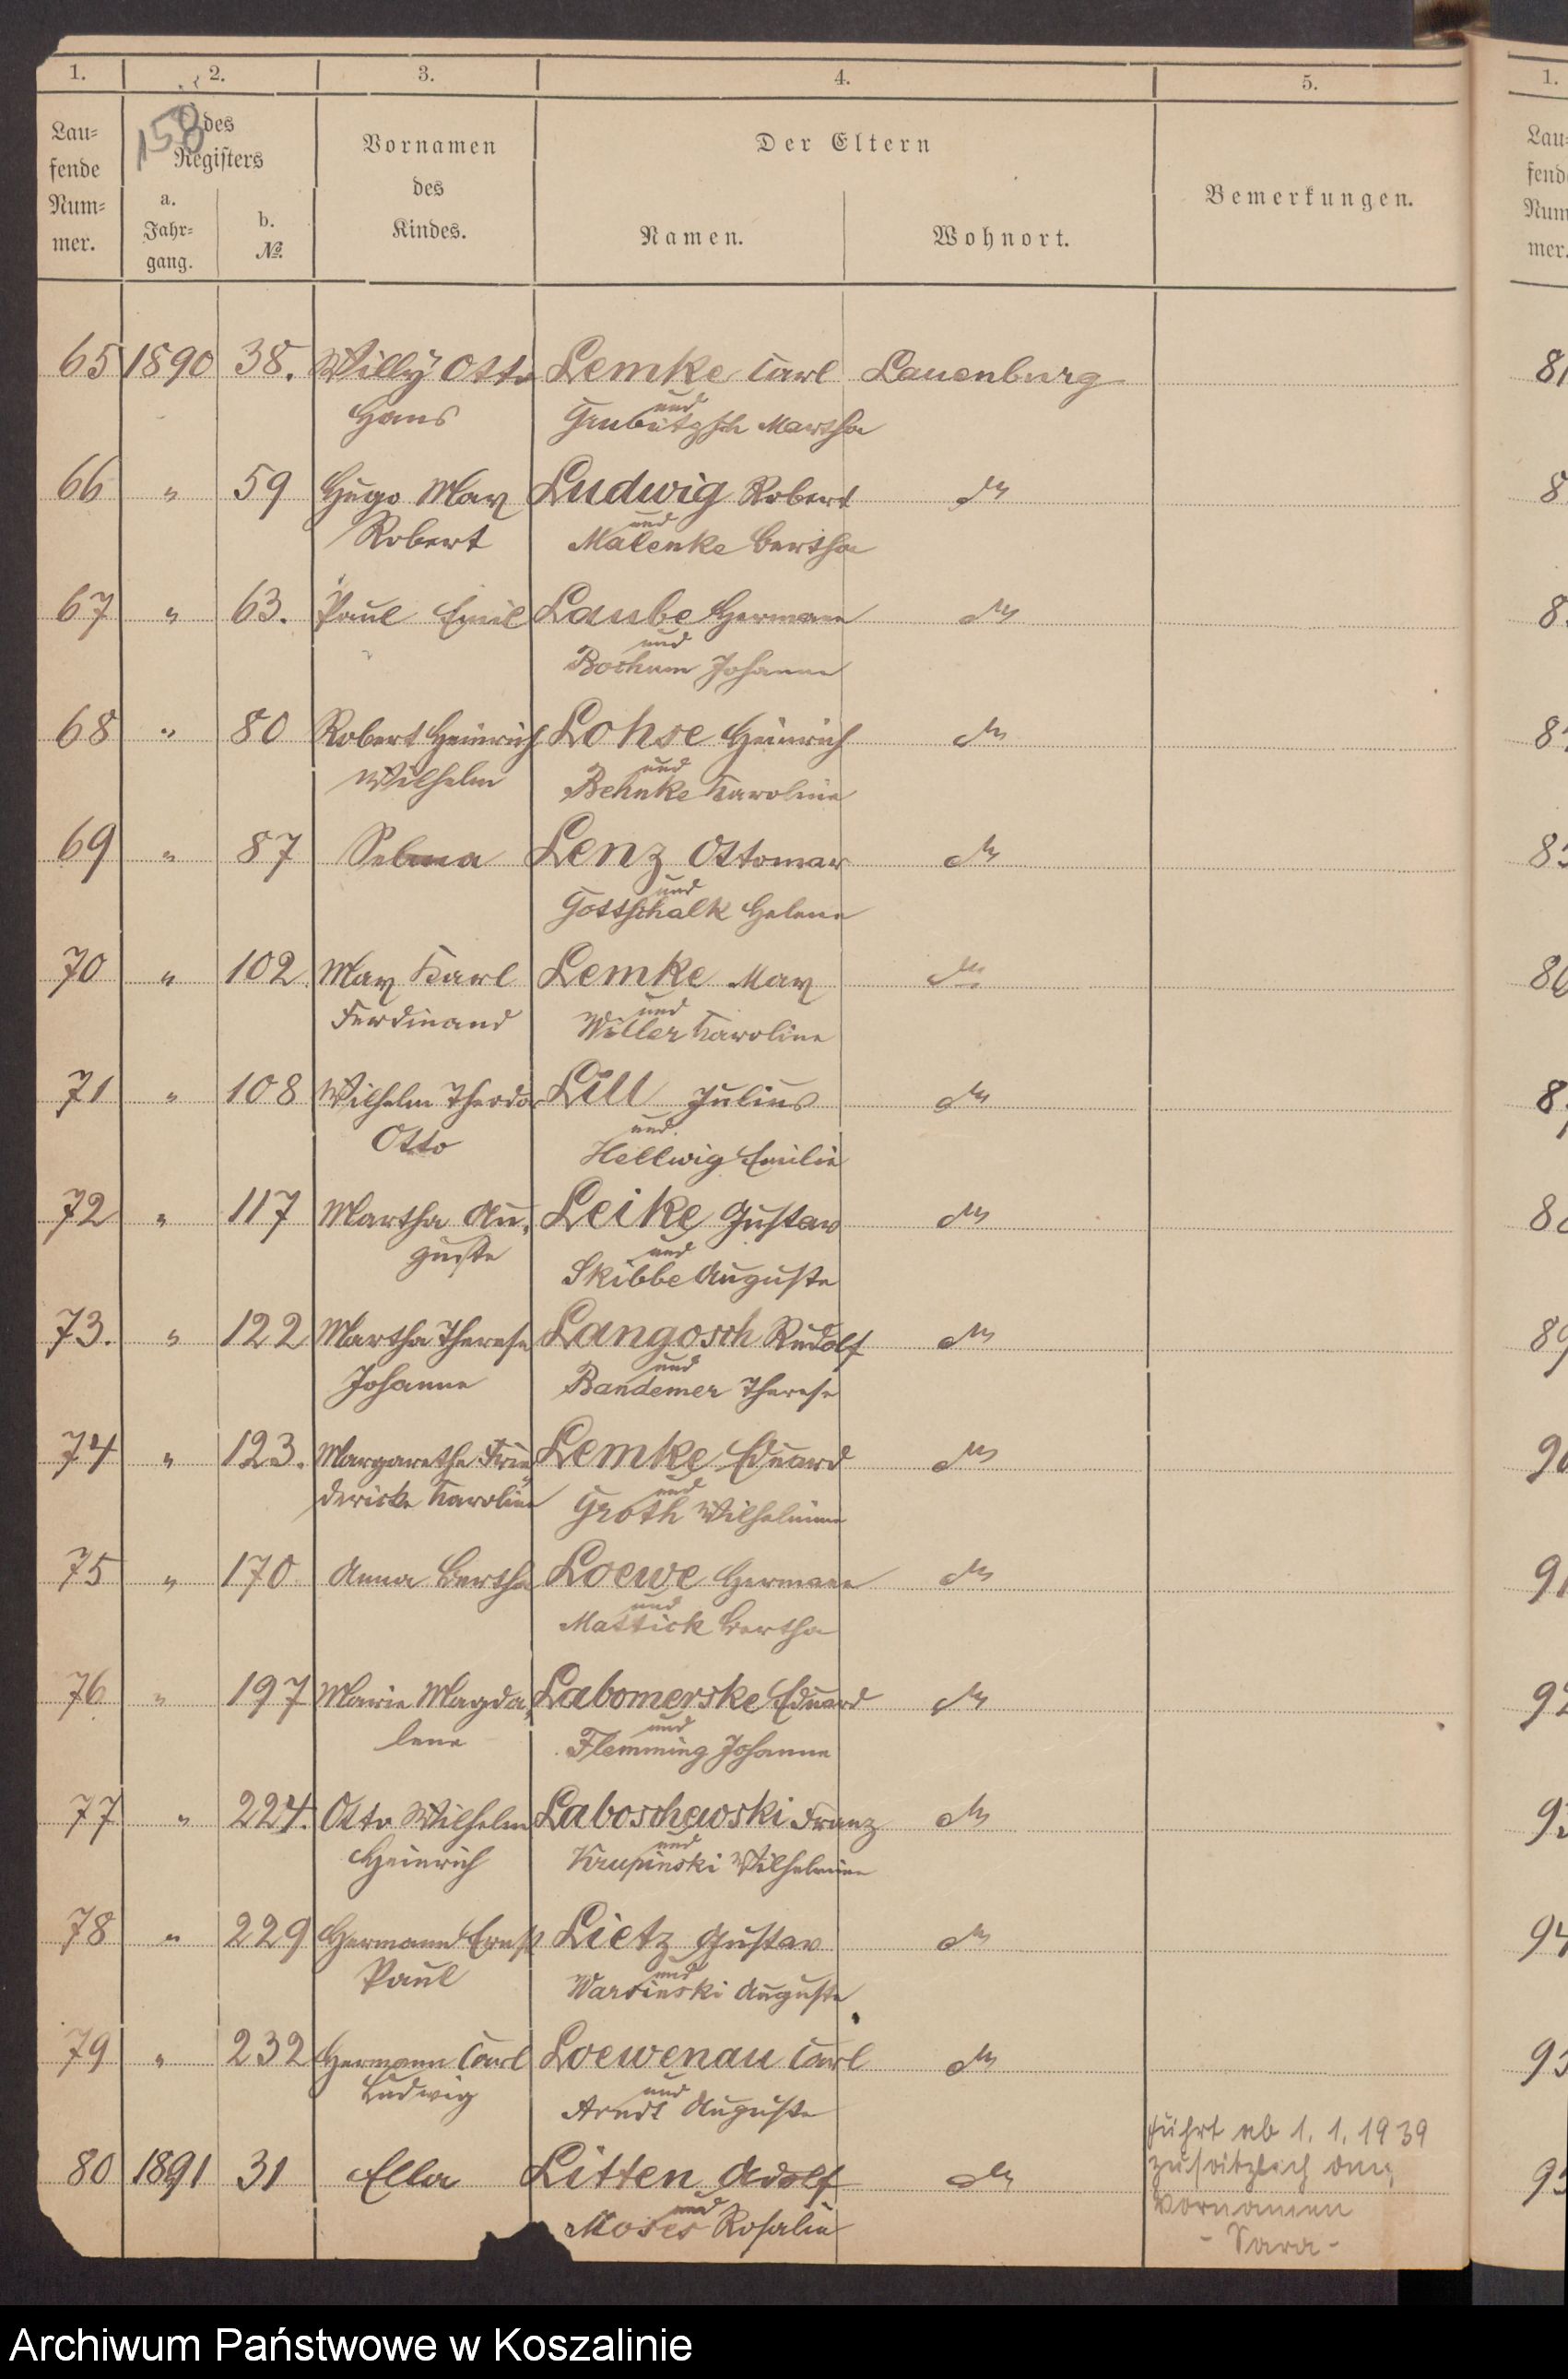 1. 2. 3. 4. 5. 1.
158
Lau=
fende
Num=
mer.
des
Registers
a.
Jahr=
gang.
b.
No.
Vornamen
des
Kindes.
Der Eltern
Namen. Wohnort.
Bemerkungen.
Lau=
fend
Num
mer.
65 1890 38. Willy Otto Lemke Carl Lauenburg
Hans und
Martha
66 " 59 Hugo Max Ludwig Robert do
Robert und
Malenke Bertha
67 " 63. Paul Emil Laube Hermann do
und
Bochum Johanne
68 " 80 Robert Heinrich Lohse Heinrich do
Wilhelm und
Behnke Karoline
69 " 87 Selma Lenz Ottomar do
und
Gottschalk Helene
70 " 102 Max Karl Lemke Max do
Ferdinand und
Karoline
71 " 108 Wilhelm Theodor Lill Julius do
Otto und
Hellwig Emilie
72 " 117 Martha Au= Leike Gustav do
guste und
Skibbe Auguste
73. " 122 Martha Therese Langosch Rudolf do
Johanne und
Bandemer Therese
74 " 123. Margarethe Frie= Lemke Eduard do
dericke Karoline und
Groth Wilhelmine
75 " 170 Anna Bertha Loewe Hermann do
und
Mattick Bertha
76 " 197 Marie Magda= Labomerske Eduard do
lene und
Flemming Johanna
77 " 224. Otto Wilhelm Laboschewski Franz do
Heinrich und
Krupinski Wilhelmine
78 " 229 Hermann Ernst Lietz Gustav do
Paul und
Warsinski Auguste
79 " 232 Hermann Carl Loewenau Carl do
Ludwig und
Arndt Auguste
80 1891 31 Ella Litten Adolf do
und
Moses Rosalie
führt ab 1. 1. 1939
zusätzlich den
Vornamen
- Sara -
Archiwum Państwowe w Koszalinie